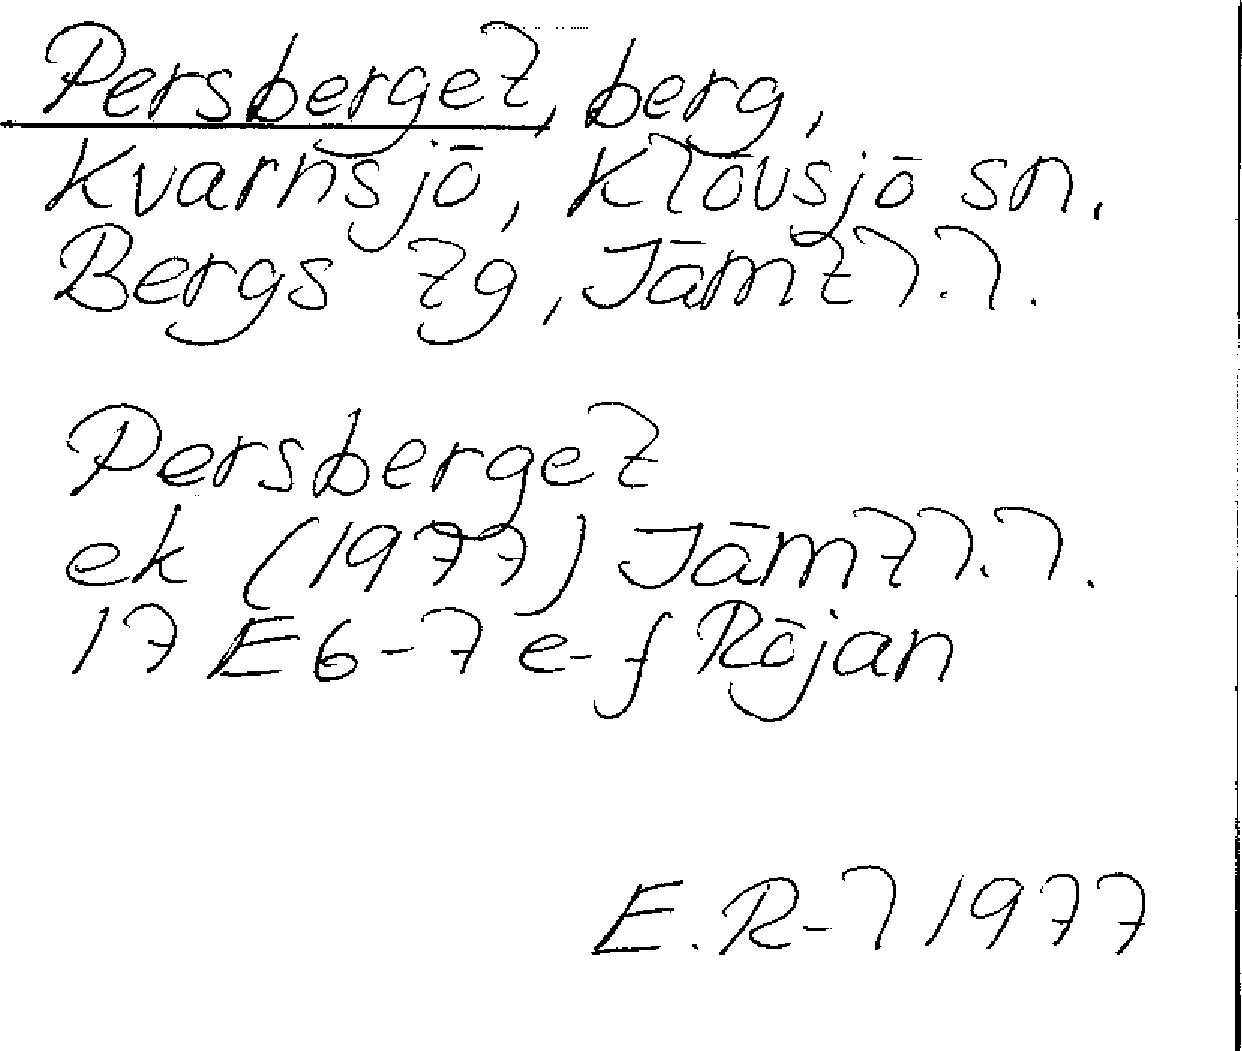 Persberget, berg,
Kvarnsjö, Klövsjö sn.
Bergs tg, Jämtl.l.
Persberget
ek (1977) Jämtl.l.
17 E 6-7 e-f Röjan
E.R-l 1977